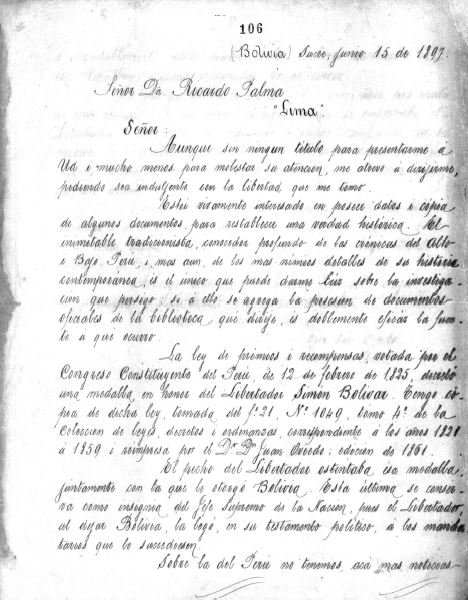 106
(Bolivia) Sucre, junio 15 de 1897.
Señor Dn. Ricardo Palma
"Lima".
Señor:
Aunque sin ningun título para presentarme a
Ud i mucho menos para molestar su atencion, me atrevo a dirijirme,
pidiendo sea indulgente con la libertad que me tomo.
Estoi vivamente interesado en poseer datos i copia
de algunos documentos, para restablecer una verdad histórica. El
inimitable tradicionista, conocedor profundo de las crónicas del Alto
i Bajo Perú, i mas aun, de los mas nimios detalles de su historia
contemporanea, es el unico que puede darme luz sobre la investiga-
cion que persigo; si á ello se agrega la posesion de documentos
oficiales de la biblioteca que dirije, es doblemente eficaz la fuen-
te a que ocurro.
La ley de premios i recompensas, votada por el
Congreso Constituyente del Perú, de 12 de febrero de 1825, decretó
una medalla, en honor del Libertador Simon Bolivar. Tengo có-
pia de dicha ley, tomada del fs. 21, No. 1049, tomo 4o. de la
Coleccion de leyes, decretos i ordenanzas, correspondiente á los años 1821
á 1859 i reimpresa por el Dr. Dn. Juan Oviedo: edicion de 1861.
El pecho del Libertador ostentaba esa medalla
juntamente con la que le otorgó Bolivia. Esta última se conser-
va como insignia del Jefe Supremo de la Nacion, pues el Libertador,
al dejar Bolivia, la legó, en su testamento político, á los manda-
tarios que le sucediesen.
Sobre la del Perú no tenemos, acá mas noticias